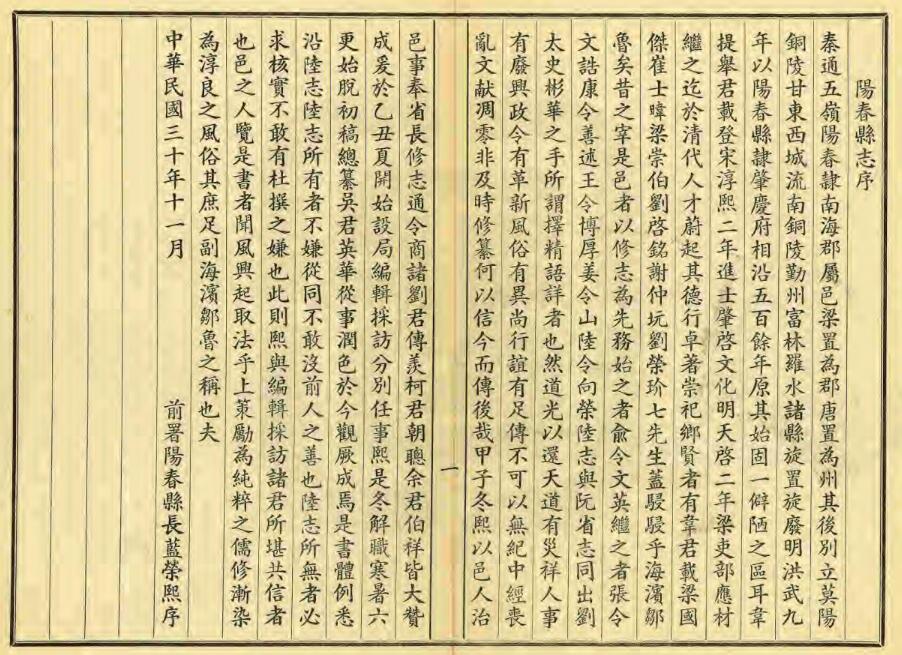 陽春縣志序
秦通五嶺陽春隸南海郡屬邑梁置為郡唐置為州其後別立莫陽
銅陵甘東西城流南銅陵勤州富林羅水諸縣旋置旋廢明洪武九
年以陽春縣隸肇慶府相沿五百餘年原其始固一僻陋之區耳韋
提舉君載登宋淳熙二年進士肇啓文化明天啓二年梁吏部應材
繼之迄於清代人才蔚起其德行卓著崇祀鄉賢者有韋君載梁國
傑崔士暐梁崇伯劉啓銘謝仲坃劉榮玠七先生蓋駸駸乎海濱鄒
魯矣昔之宰是邑者以修志為先務始之者俞令文英繼之者張令
文誥康令善述王令博厚姜令山陸令向榮陸志與阮省志同出劉
太史彬華之手所謂擇精語詳者也然道光以還天道有災祥人事
有廢興政令有革新風俗有異尚行誼有足傳不可以無紀中經喪
亂文献凋零非及時修纂何以信今而傳後哉甲子冬熙以邑人治
一
邑事奉省長修志通令商諸劉君傳羨柯君朝聰余君伯祥皆大贊
成爰於乙丑夏開始設局編輯採訪分別任事熙是冬解職寒暑六
更始脫初稿總纂吳君英華從事潤色於今觀厥成焉是書體例悉
沿陸志陸志所有者不嫌從同不敢沒前人之善也陸志所無者必
求核實不敢有杜撰之嫌也此則熙與編輯採訪諸君所堪共信者
也邑之人覽是書者聞風興起取法乎上策勵為純粹之儒修漸染
為淳良之風俗其庶足副海濱鄒魯之稱也夫
中華民國三十年十一月
前署陽春縣長藍榮熙序